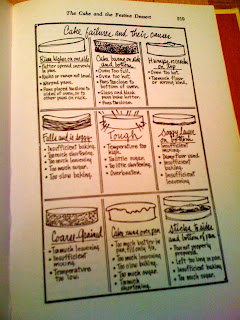 The Cake and the Festive Dessert
359
Cake failures and their causes
Rises higher on one side
• Batter spread unevenly in pan.
• Racks or range not level.
• Warped pans.
• Pans placed too close to sides of oven, or to other pans on rack.
Cake burns on sides and bottom
• Oven too full.
• Oven too hot.
• Pans too close to bottom of oven.
• Glass and black pans bake hotter.
• Pans too close.
Humps, cracks on top
• Oven too hot.
• Too much flour, or wrong kind.
Falls and is soggy
• Insufficient baking.
• Too much shortening.
• Too much leavening
• Too much sugar.
• Too slow baking.
Tough
• Temperature too high.
• Too little sugar.
• Too little shortening.
• Overbeaten.
Soggy layer at bottom
• Insufficient mixing.
• Insufficient baking.
• Too much sugar.
Coarse-grained
• Too much leavening
• Insufficient mixing.
• Temperature too low.
Cake runs over pan
• Too much batter in pan,
• Too much leavening
• Too slow baking.
• Too much sugar.
• Too much shortening.
Sticks to sides and bottom of pan
• Pan not properly prepared.
• Left too long in pan.
• Insufficient baking
• Too much sugar.